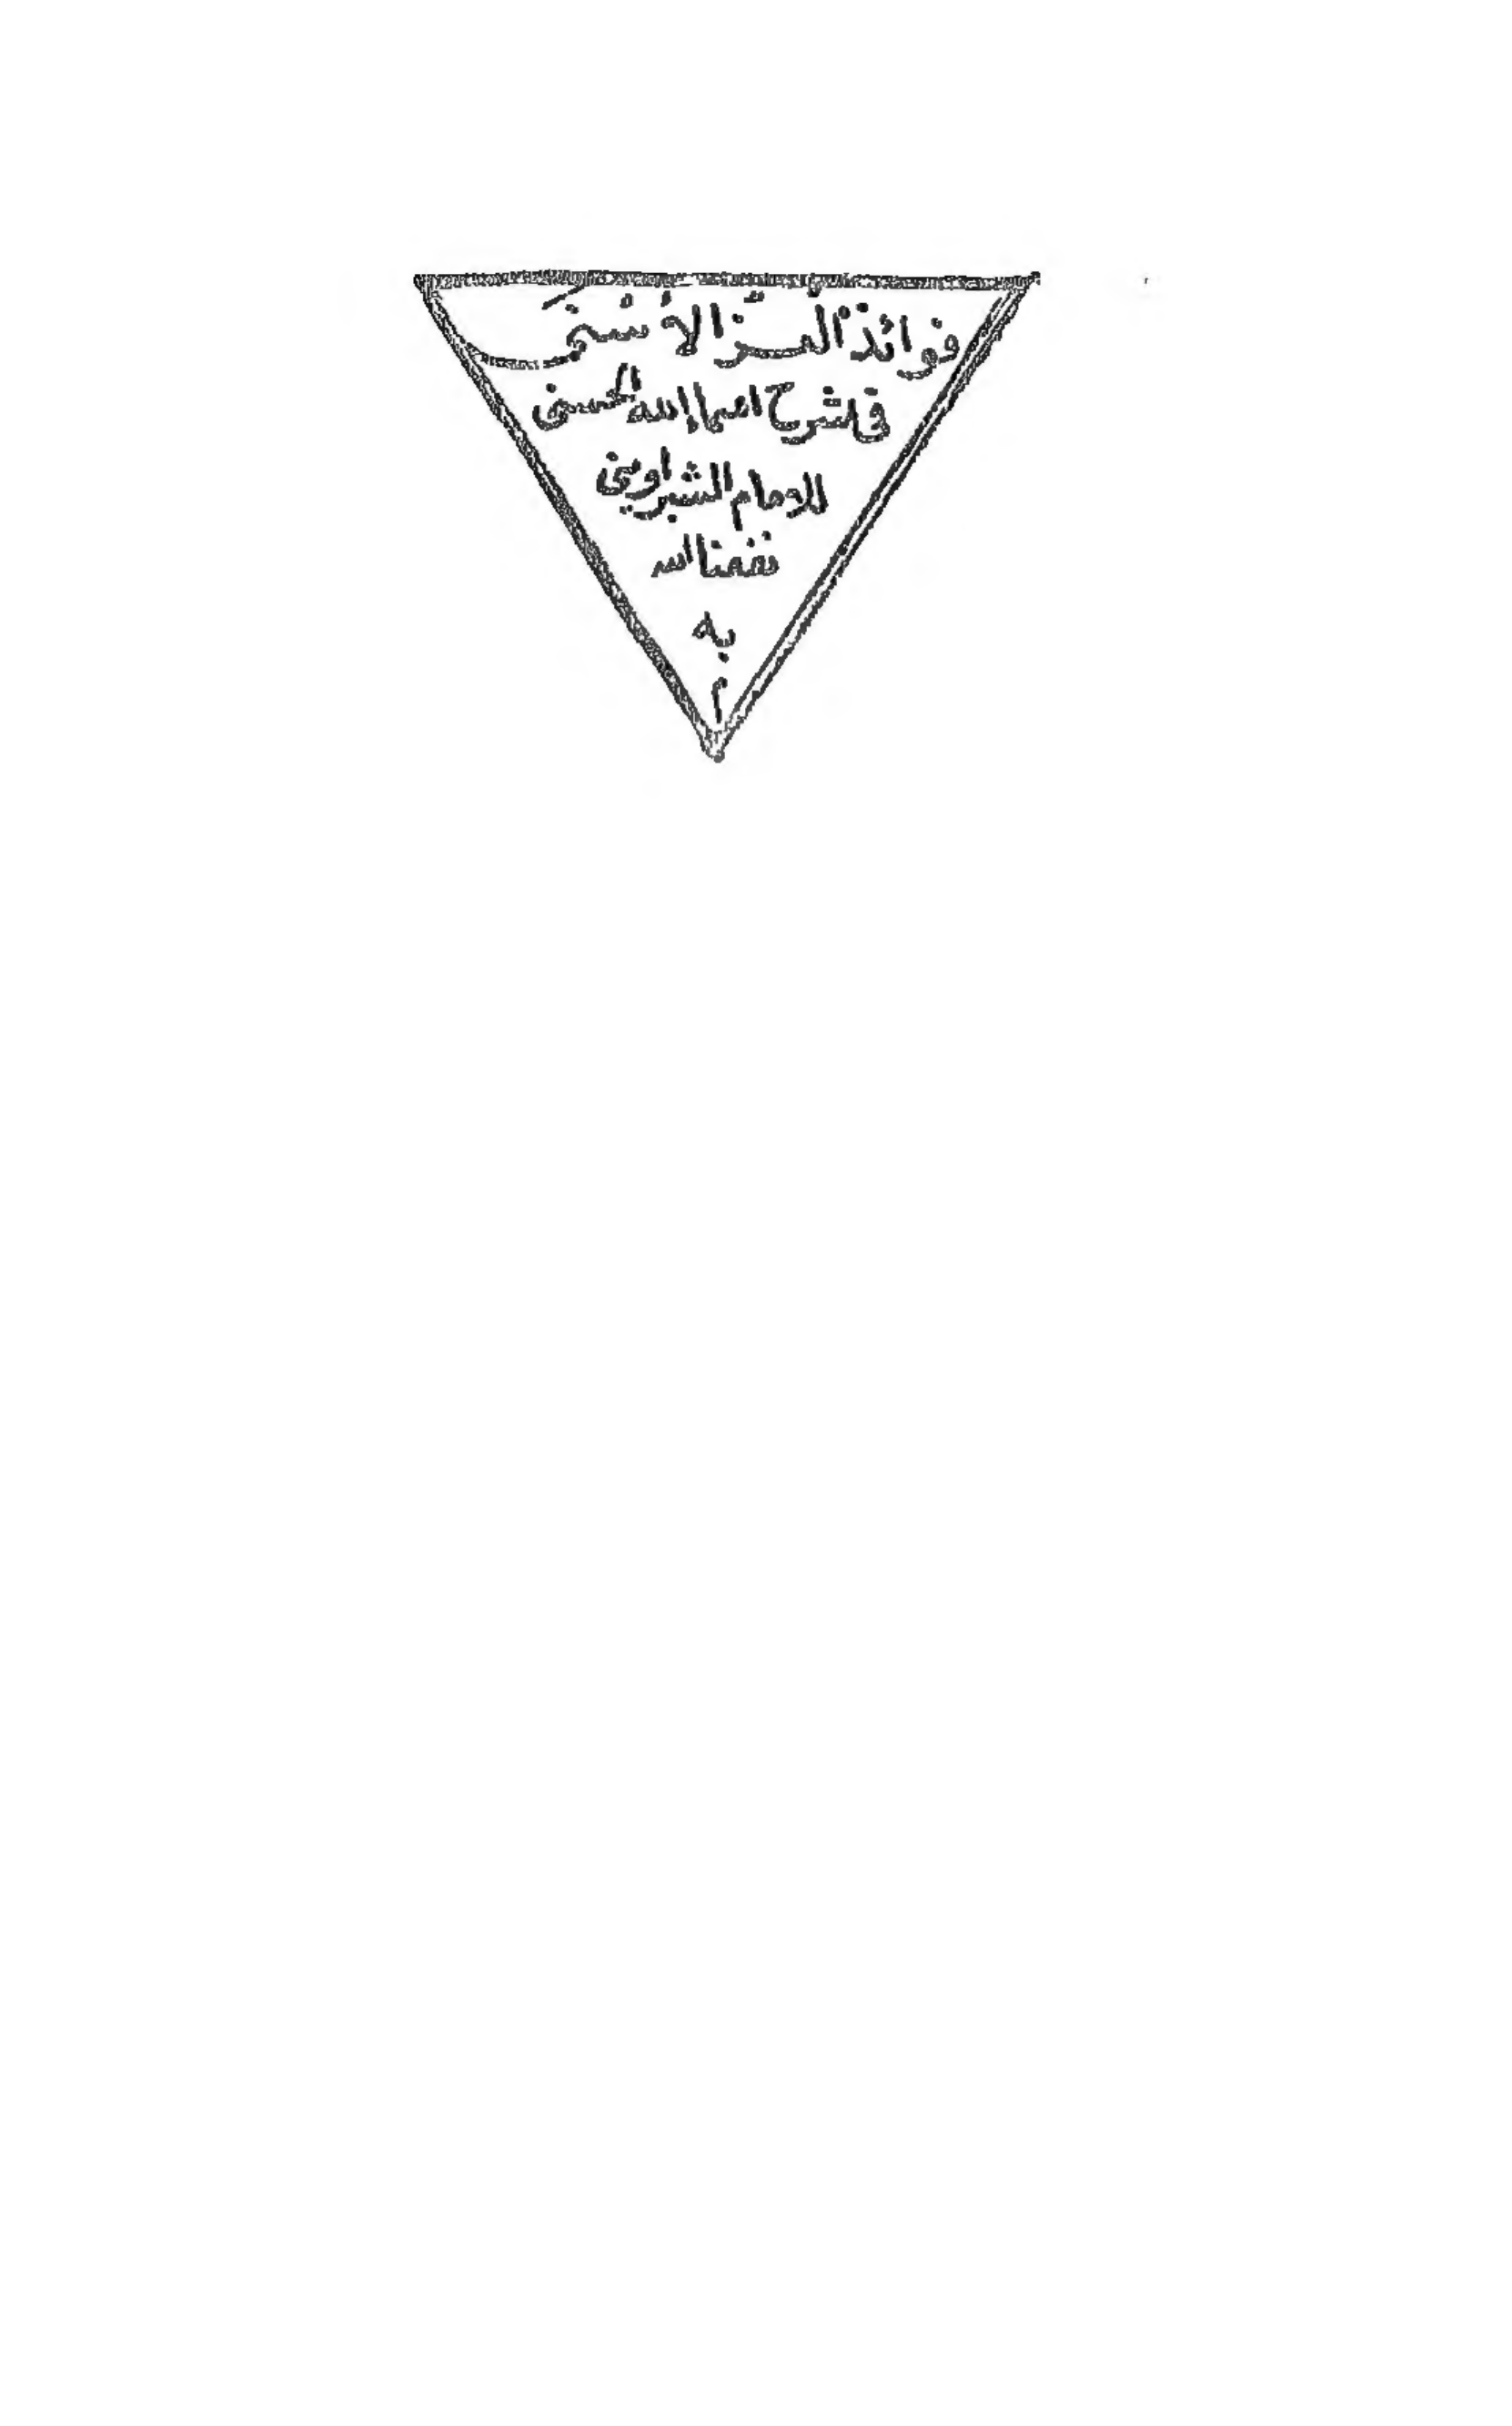 فوائد العز الأسنى
في شرح اسماء الله الحسنى
للامام الشبراوينى
نفعنا الله
به
م